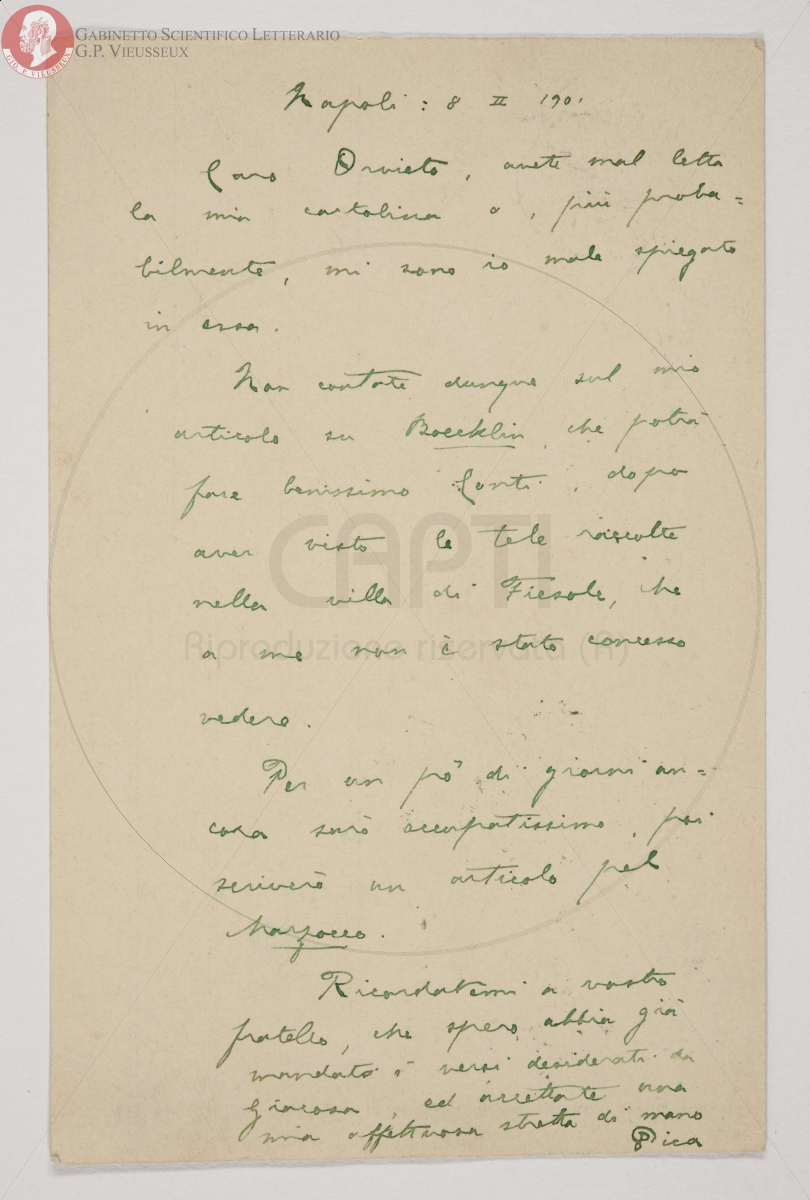 GABINETTO SCIENTIFICO LETTERARIO
G.P. VIEUSSEUX
GIO. P. VIEUSSEUX
Napoli : 8 II 1901
Caro Orvieto, avete mal letta
la mia cartolina o, più proba=
bilmente, mi sono io male spiegato
in essa.
Non contate dunque sul mio
articolo su Boecklin, che potrà
fare benissimo Conti, dopo
aver visto le tele raccolte
nella villa di Fiesole, che
CAPTI
a me non è stato concesso
Riproduzione riservata (R)
vedere.
Per un pò di giorni an=
cora sarò occupatissimo, poi
scriverò un articolo pel
Marzocco.
Ricordatemi a vostro
fratello, che spero abbia già
mandato i versi desiderati da
Giacosa, ed accettate una
mia affettuosa stretta di mano
Pica